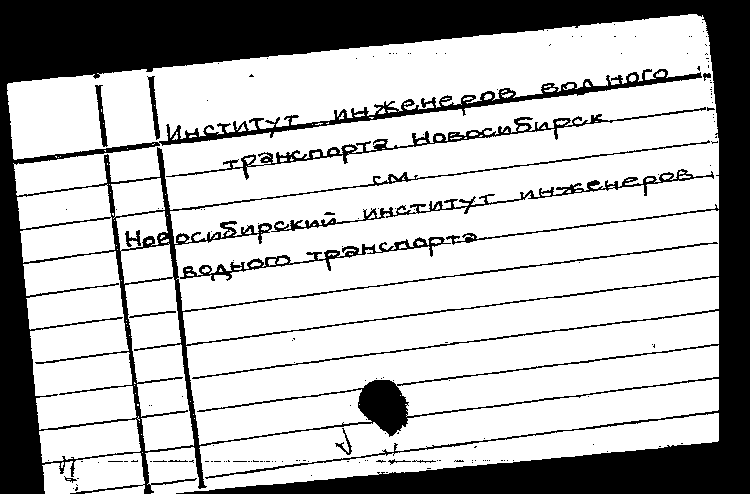 Институт инженеров водного
транспорта. Новосибирск
см.
Новосибирский институт инженеров
водного транспорта